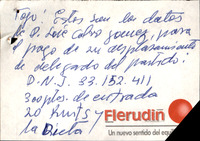 Top: Estos son los datos
de D. José Calvo Gomez, para
el pago de su desplazamiento
de delegado del partido:
D.N.I. 33.152.411
300 ptes. de entrada
20 Kmts y
la Dieta
Flerudin
Un nuevo sentido del equi